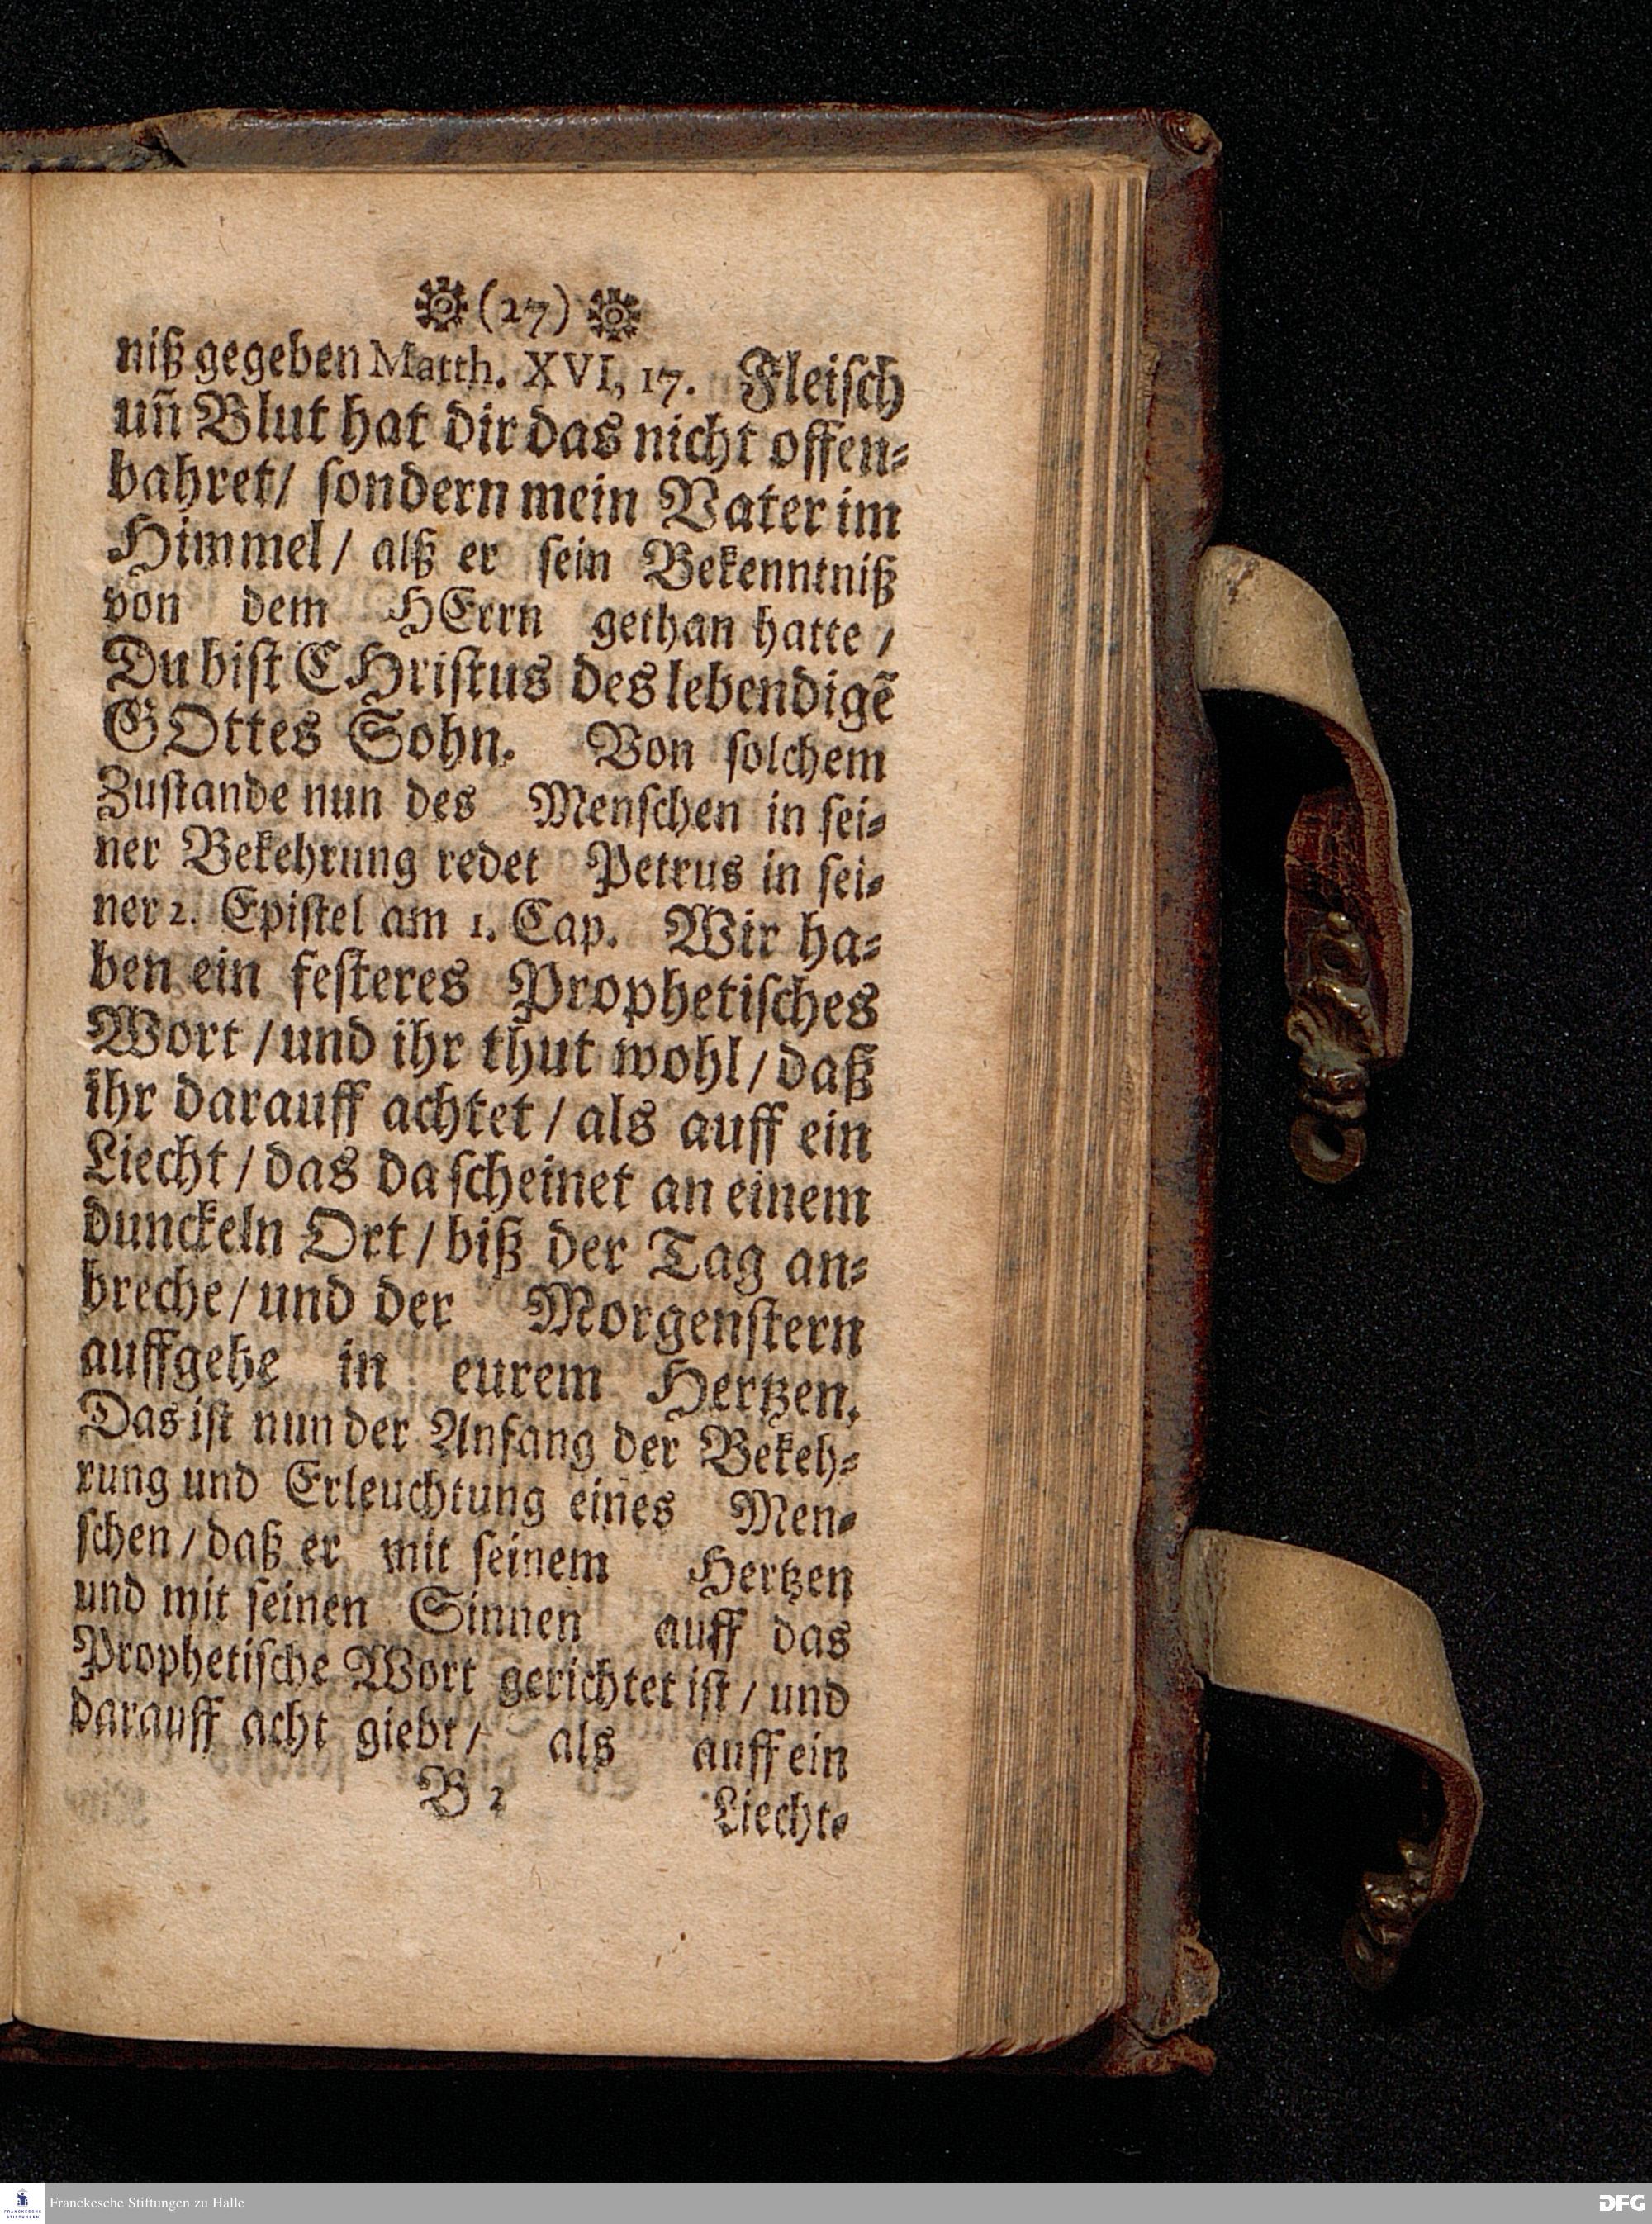 (27)
niß gegeben Matth. XVI, 17. Fleiſch
uñ Blut hat dir das nicht offen⸗
bahret/ ſondern mein Vater im
Himmel/ alß er ſein Bekenntniß
von dem HErrn gethan hatte /
Du biſt CHriſtus des lebendigẽ
GOttes Sohn. Von ſolchem
Zuſtande nun des Menſchen in ſei⸗
ner Bekehrung redet Petrus in ſei⸗
ner 2. Epiſtel am 1. Cap. Wir ha⸗
ben ein feſteres Prophetiſches
Wort / und ihr thut wohl / daß
ihr darauff achtet / als auff ein
Liecht / das da ſcheinet an einem
dunckeln Ort / biß der Tag an⸗
breche / und der Morgenſtern
auffgehe in eurem Hertzen.
Das iſt nun der Anfang der Bekeh⸗
rung und Erleuchtung eines Men⸗
ſchen / daß er mit ſeinem Hertzen
und mit ſeinen Sinnen auff das
Prophetiſche Wort gerichtet iſt / und
darauff acht giebt / als auff ein
B 2 Liecht⸗
Franckesche Stiftungen zu Halle
DFG